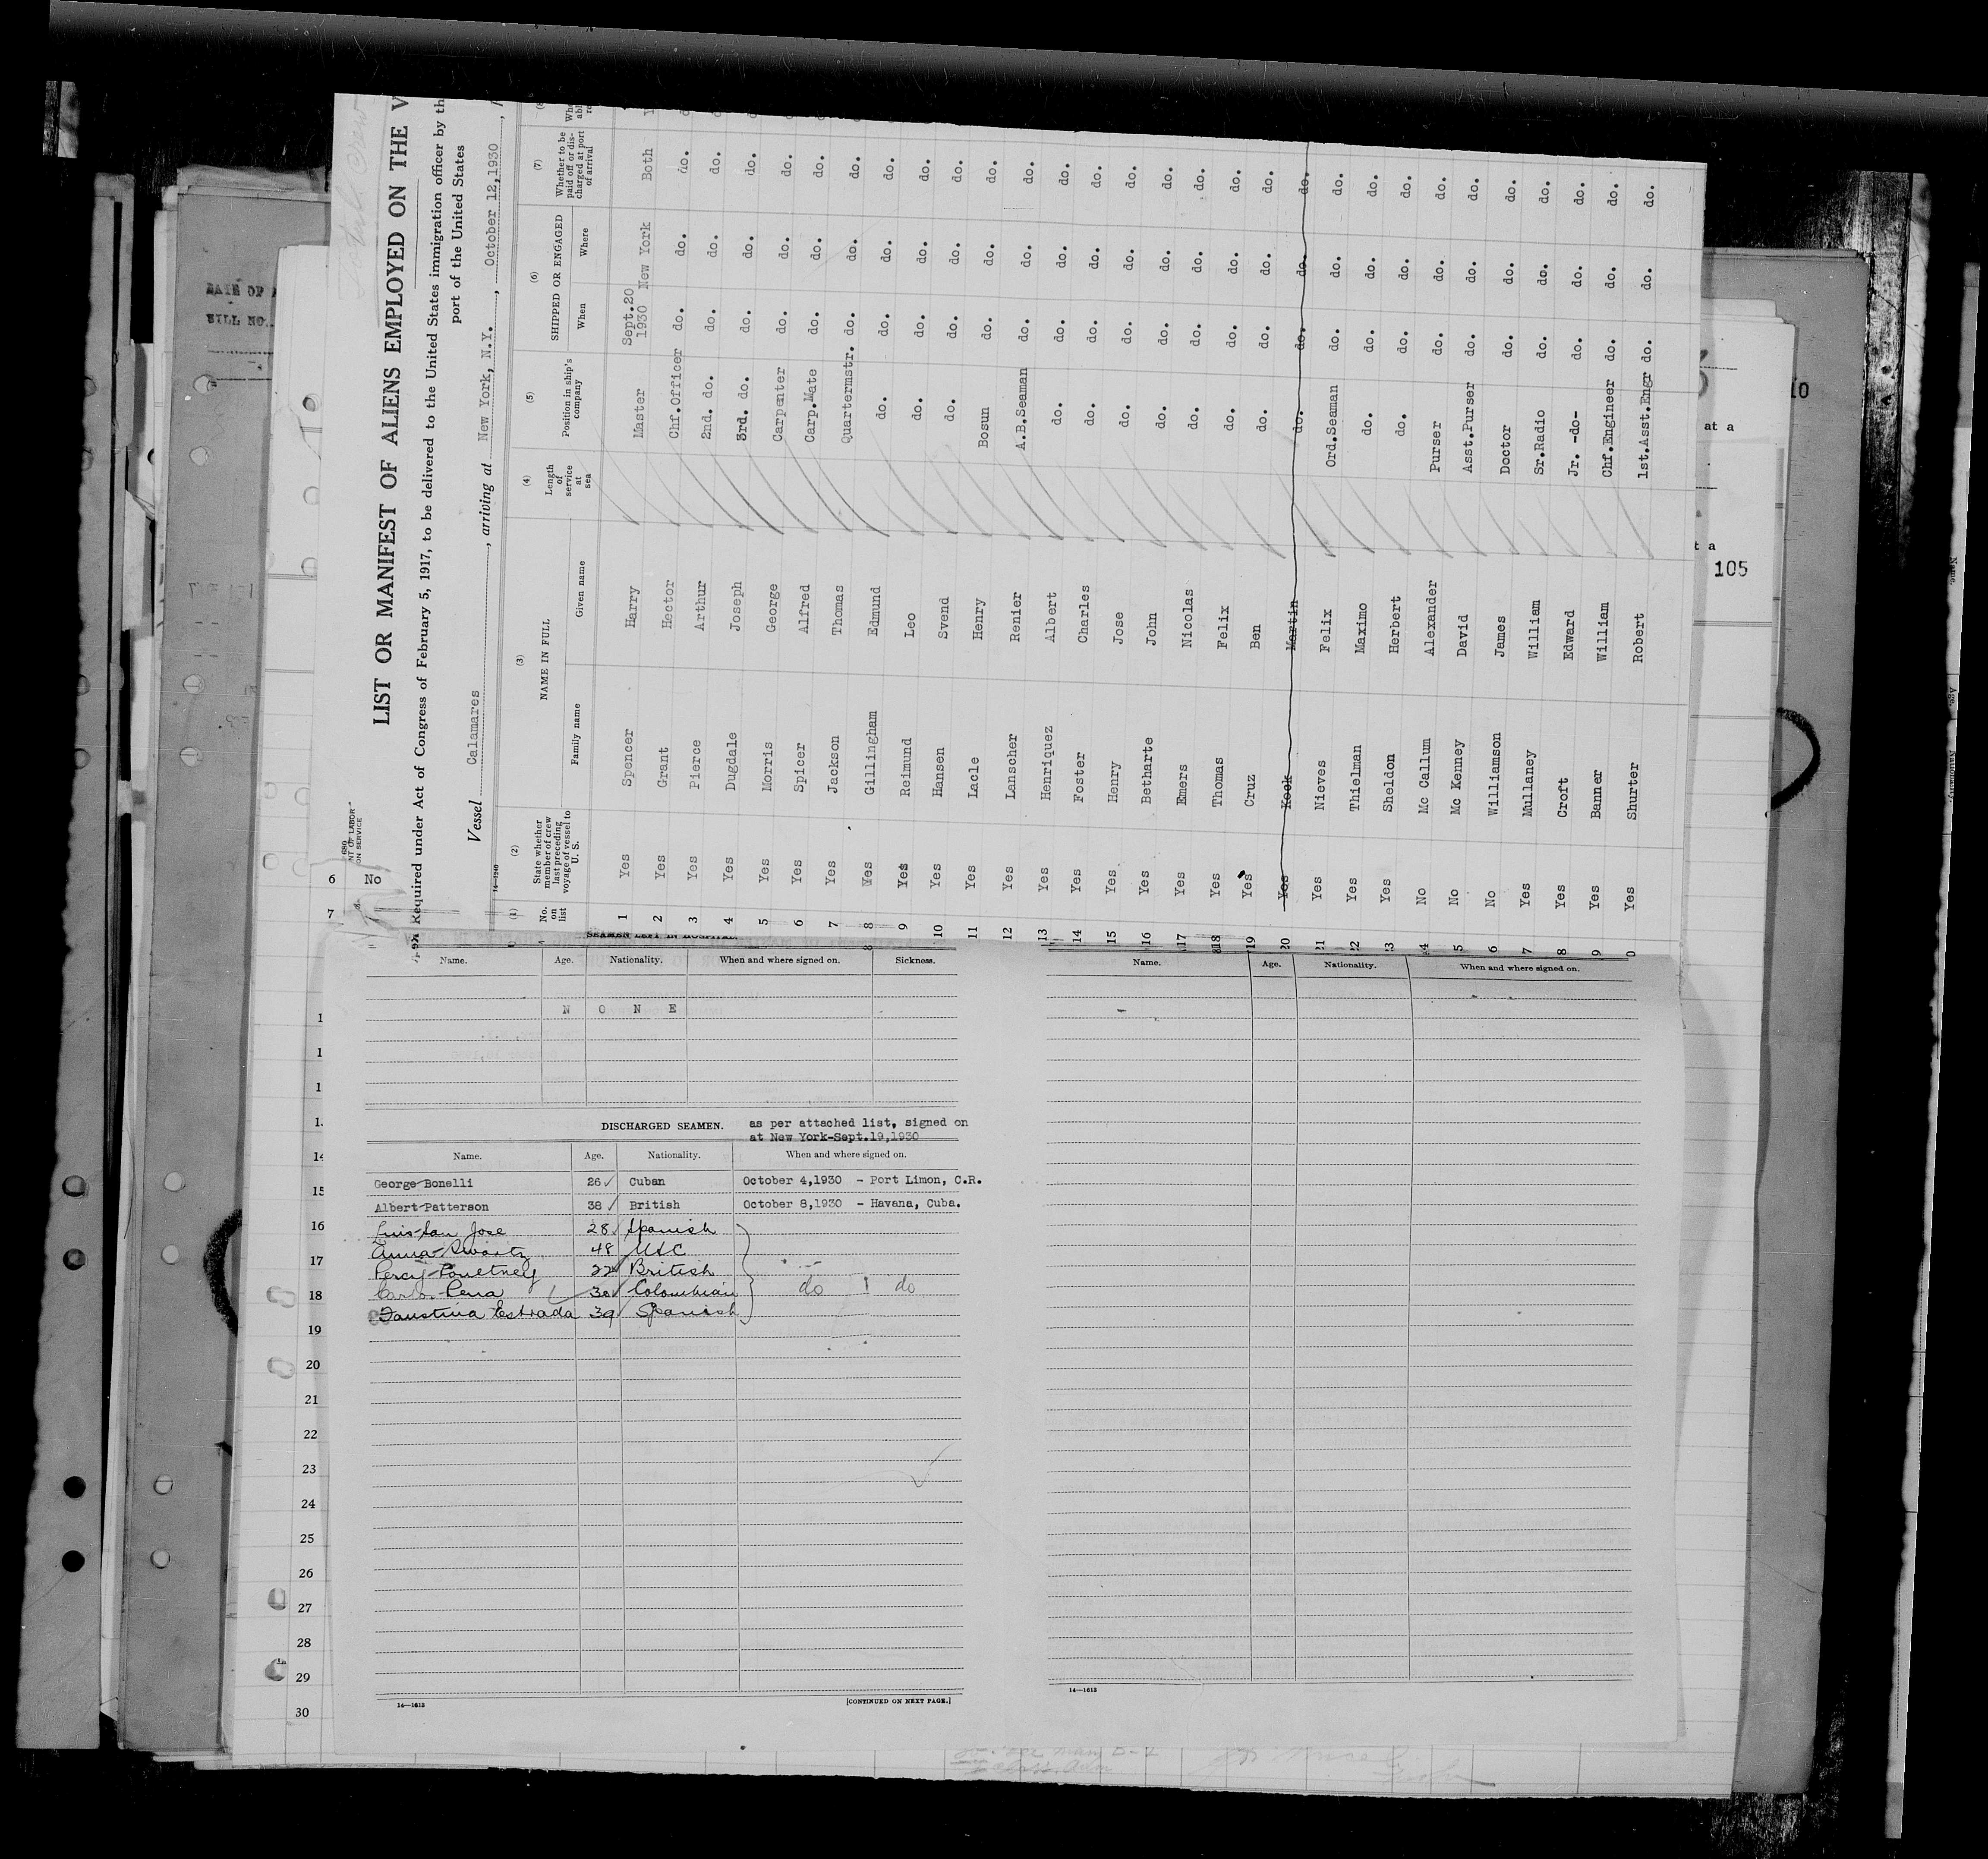 LIST OR MANIFEST OF ALIENS EMPLOYED ON THE V
Required under Act of Congress of February 5, 1917, to be delivered to the United States immigration officer by th
port of the United States
Vessel Calamares, arriving at New York, N.Y., October 12,1930,
14-1240
(1) (2) (3) (4) (5) (6) (7)
No. on list
State whether member of crew last preceding voyage of vessel to U. S.
NAME IN FULL
Family name
Given name
Length of service at sea
Position in ship's company
SHIPPED OR ENGAGED
When
Where
Whether to be paid off or discharged at port of arrival
1 Yes Spencer Harry Master Sept.20 1930 New York Both
2 Yes Grant Hector Chf.Officer do. do. do.
3 Yes Pierce Arthur 2nd. do. do. do. do.
4 Yes Dugdale Joseph 3rd. do. do. do. do.
5 Yes Morris George Carpenter do. do. do.
6 Yes Spicer Alfred Carp.Mate do. do. do.
7 Yes Jackson Thomas Quartermstr. do. do. do.
8 Yes Gillingham Edmund do. do. do. do.
9 Yes Reimund Leo do. do. do. do.
10 Yes Hansen Svend do. do. do. do.
11 Yes Lacle Henry Bosun do. do. do.
12 Yes Lanscher Renier A.B.Seaman do. do. do.
13 Yes Henriquez Albert do. do. do. do.
14 Yes Foster Charles do. do. do. do.
15 Yes Henry Jose do. do. do. do.
16 Yes Betharte John do. do. do. do.
17 Yes Emers Nicolas do. do. do. do.
18 Yes Thomas Felix do. do. do. do.
19 Yes Cruz Ben do. do. do. do.
20 Yes Kock Martin do. do. do. do.
21 Yes Nieves Felix Ord.Seaman do. do. do.
22 Yes Thielman Maximo do. do. do. do.
23 Yes Sheldon Herbert do. do. do. do.
4 No Mc Callum Alexander Purser do. do. do.
5 No Mc Kenney David Asst.Purser do. do. do.
6 No Williamson James Doctor do. do. do.
7 Yes Mullaney William Sr.Radio do. do. do.
8 Yes Croft Edward Jr. -do- do. do. do.
9 Yes Banner William Chf.Engineer do. do. do.
0 Yes Shurter Robert 1st.Asst.Engr do. do. do.
6 No
7
SEAMEN LEFT IN HOSPITAL.
Name. Age. Nationality. When and where signed on. Sickness.
N O N E
DISCHARGED SEAMEN. as per attached list, signed on
at New York-Sept.19,1930
Name. Age. Nationality. When and where signed on.
George Bonelli 26 Cuban October 4,1930 - Port Limon, C.R.
Albert Patterson 38 British October 8,1930 - Havana, Cuba.
Luis San Jose 28 Spanish
Anna Swartz 48 USC
Percy Pouetney 22 British
Carlos Pena 30 Colombian do do
Faustina Estrada 39 Spanish
14
15
16
17
18
19
20
21
22
23
24
25
26
27
28
29
30
14-1613
[CONTINUED ON NEXT PAGE.]
Name. Age. Nationality. When and where signed on.
14-1613
10
at a
105